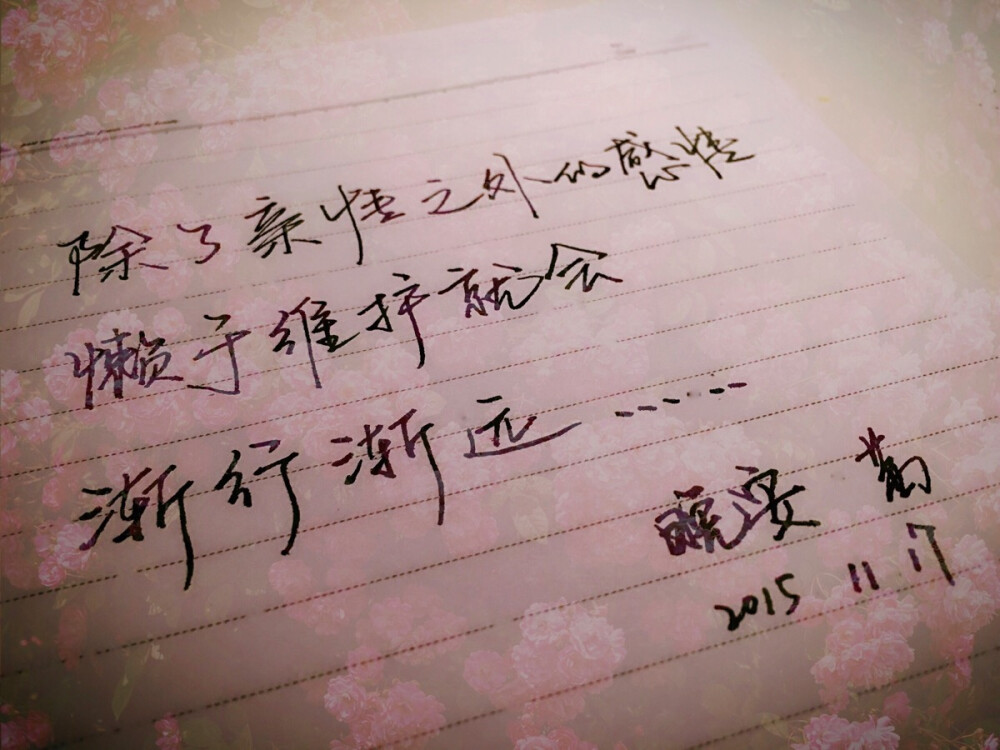 除了亲情之外的感情
懒于维护就会
渐行渐远······
晚安
2015 11 17